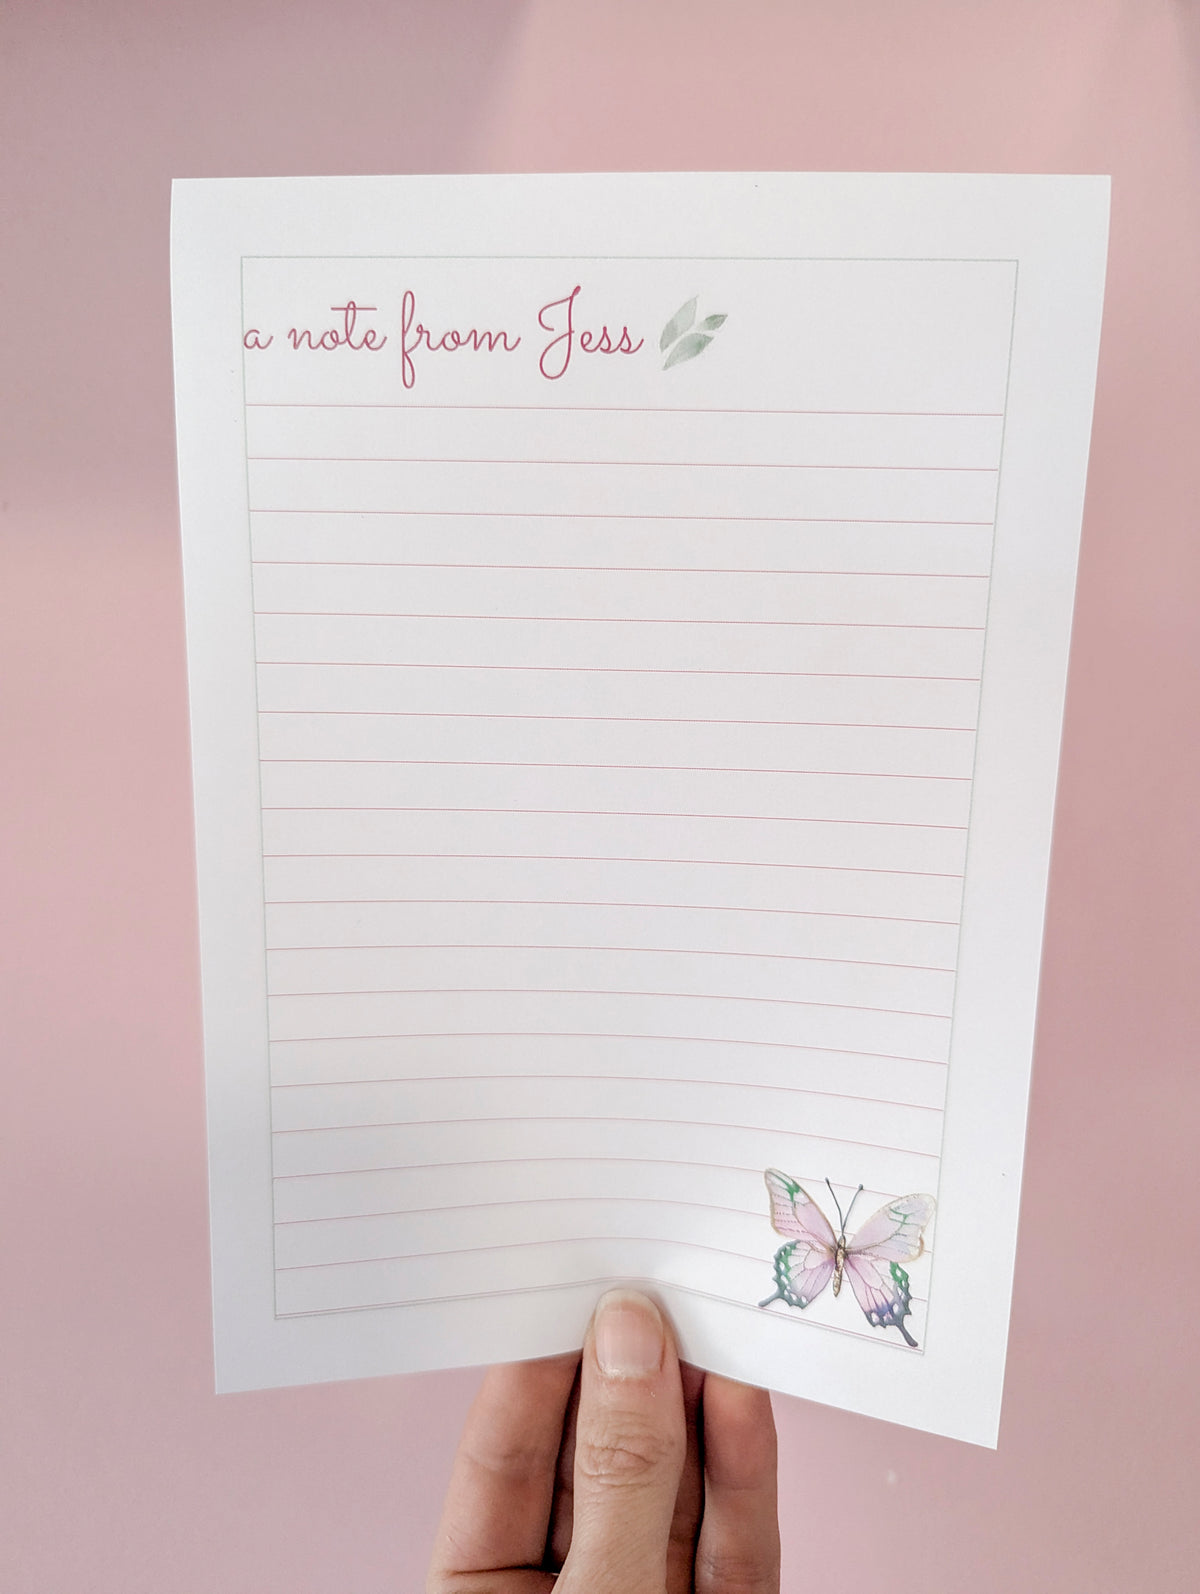 a note from Jess